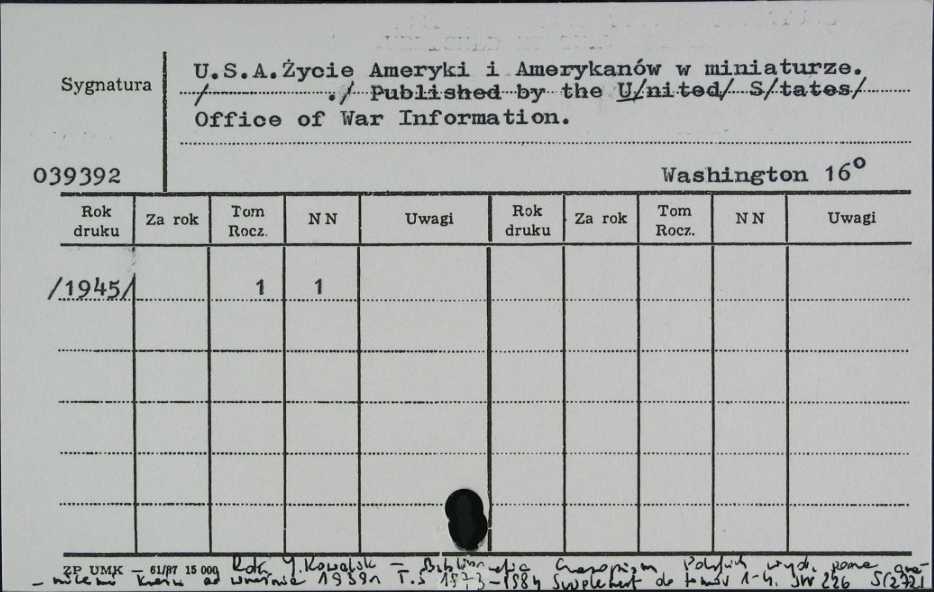 Sygnatura
U.S.A.Życie Ameryki i Amerykanów w miniaturze.
/ ./ Published by the U/nited/ S/tates/
Office of War Information.
039392
Washington 16°
Rok druku Za rok Tom Rocz. NN Uwagi Rok druku Za rok Tom Rocz. NN Uwagi
/1945/ 1 1
ZP UMK — 61/87 15 000 J.Kowalik — Bibliografia Czasopism Polskich wyd. poza gra-
– nicami Kraju od września 1939r T.5 1973–1984 Supplement do tomów 1-4. Str 226